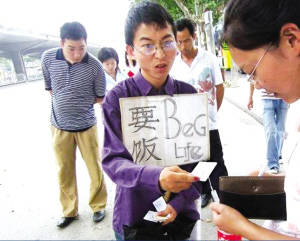 要饭
BeG
Life